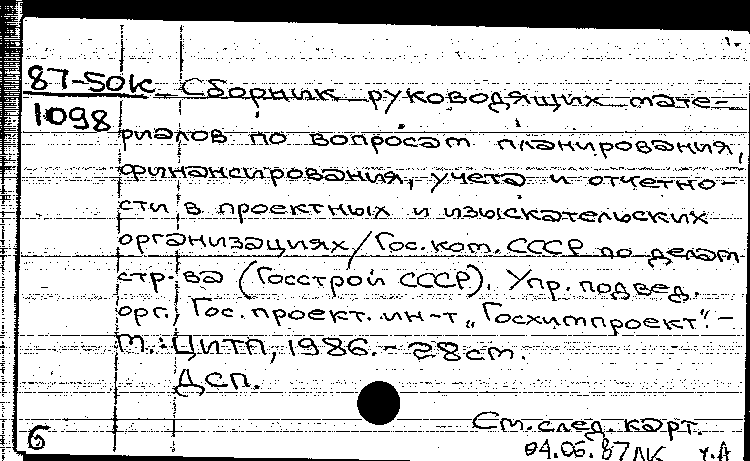 87-50К Сборник руководящих мате-
1098 риалов по вопросам планирования,
финансирования, учета и отчетно-
сти в проектных и изыскательских
организациях/Гос.ком.СССР по делам
стр-ва (Госстрой СССР). Упр. подвед.
орг., Гос.проект.ин-т „Госхимпроект".-
М.: ЦИТП, 1986.- 28см.
ДСП.
См.след.карт.
6 04.06.87